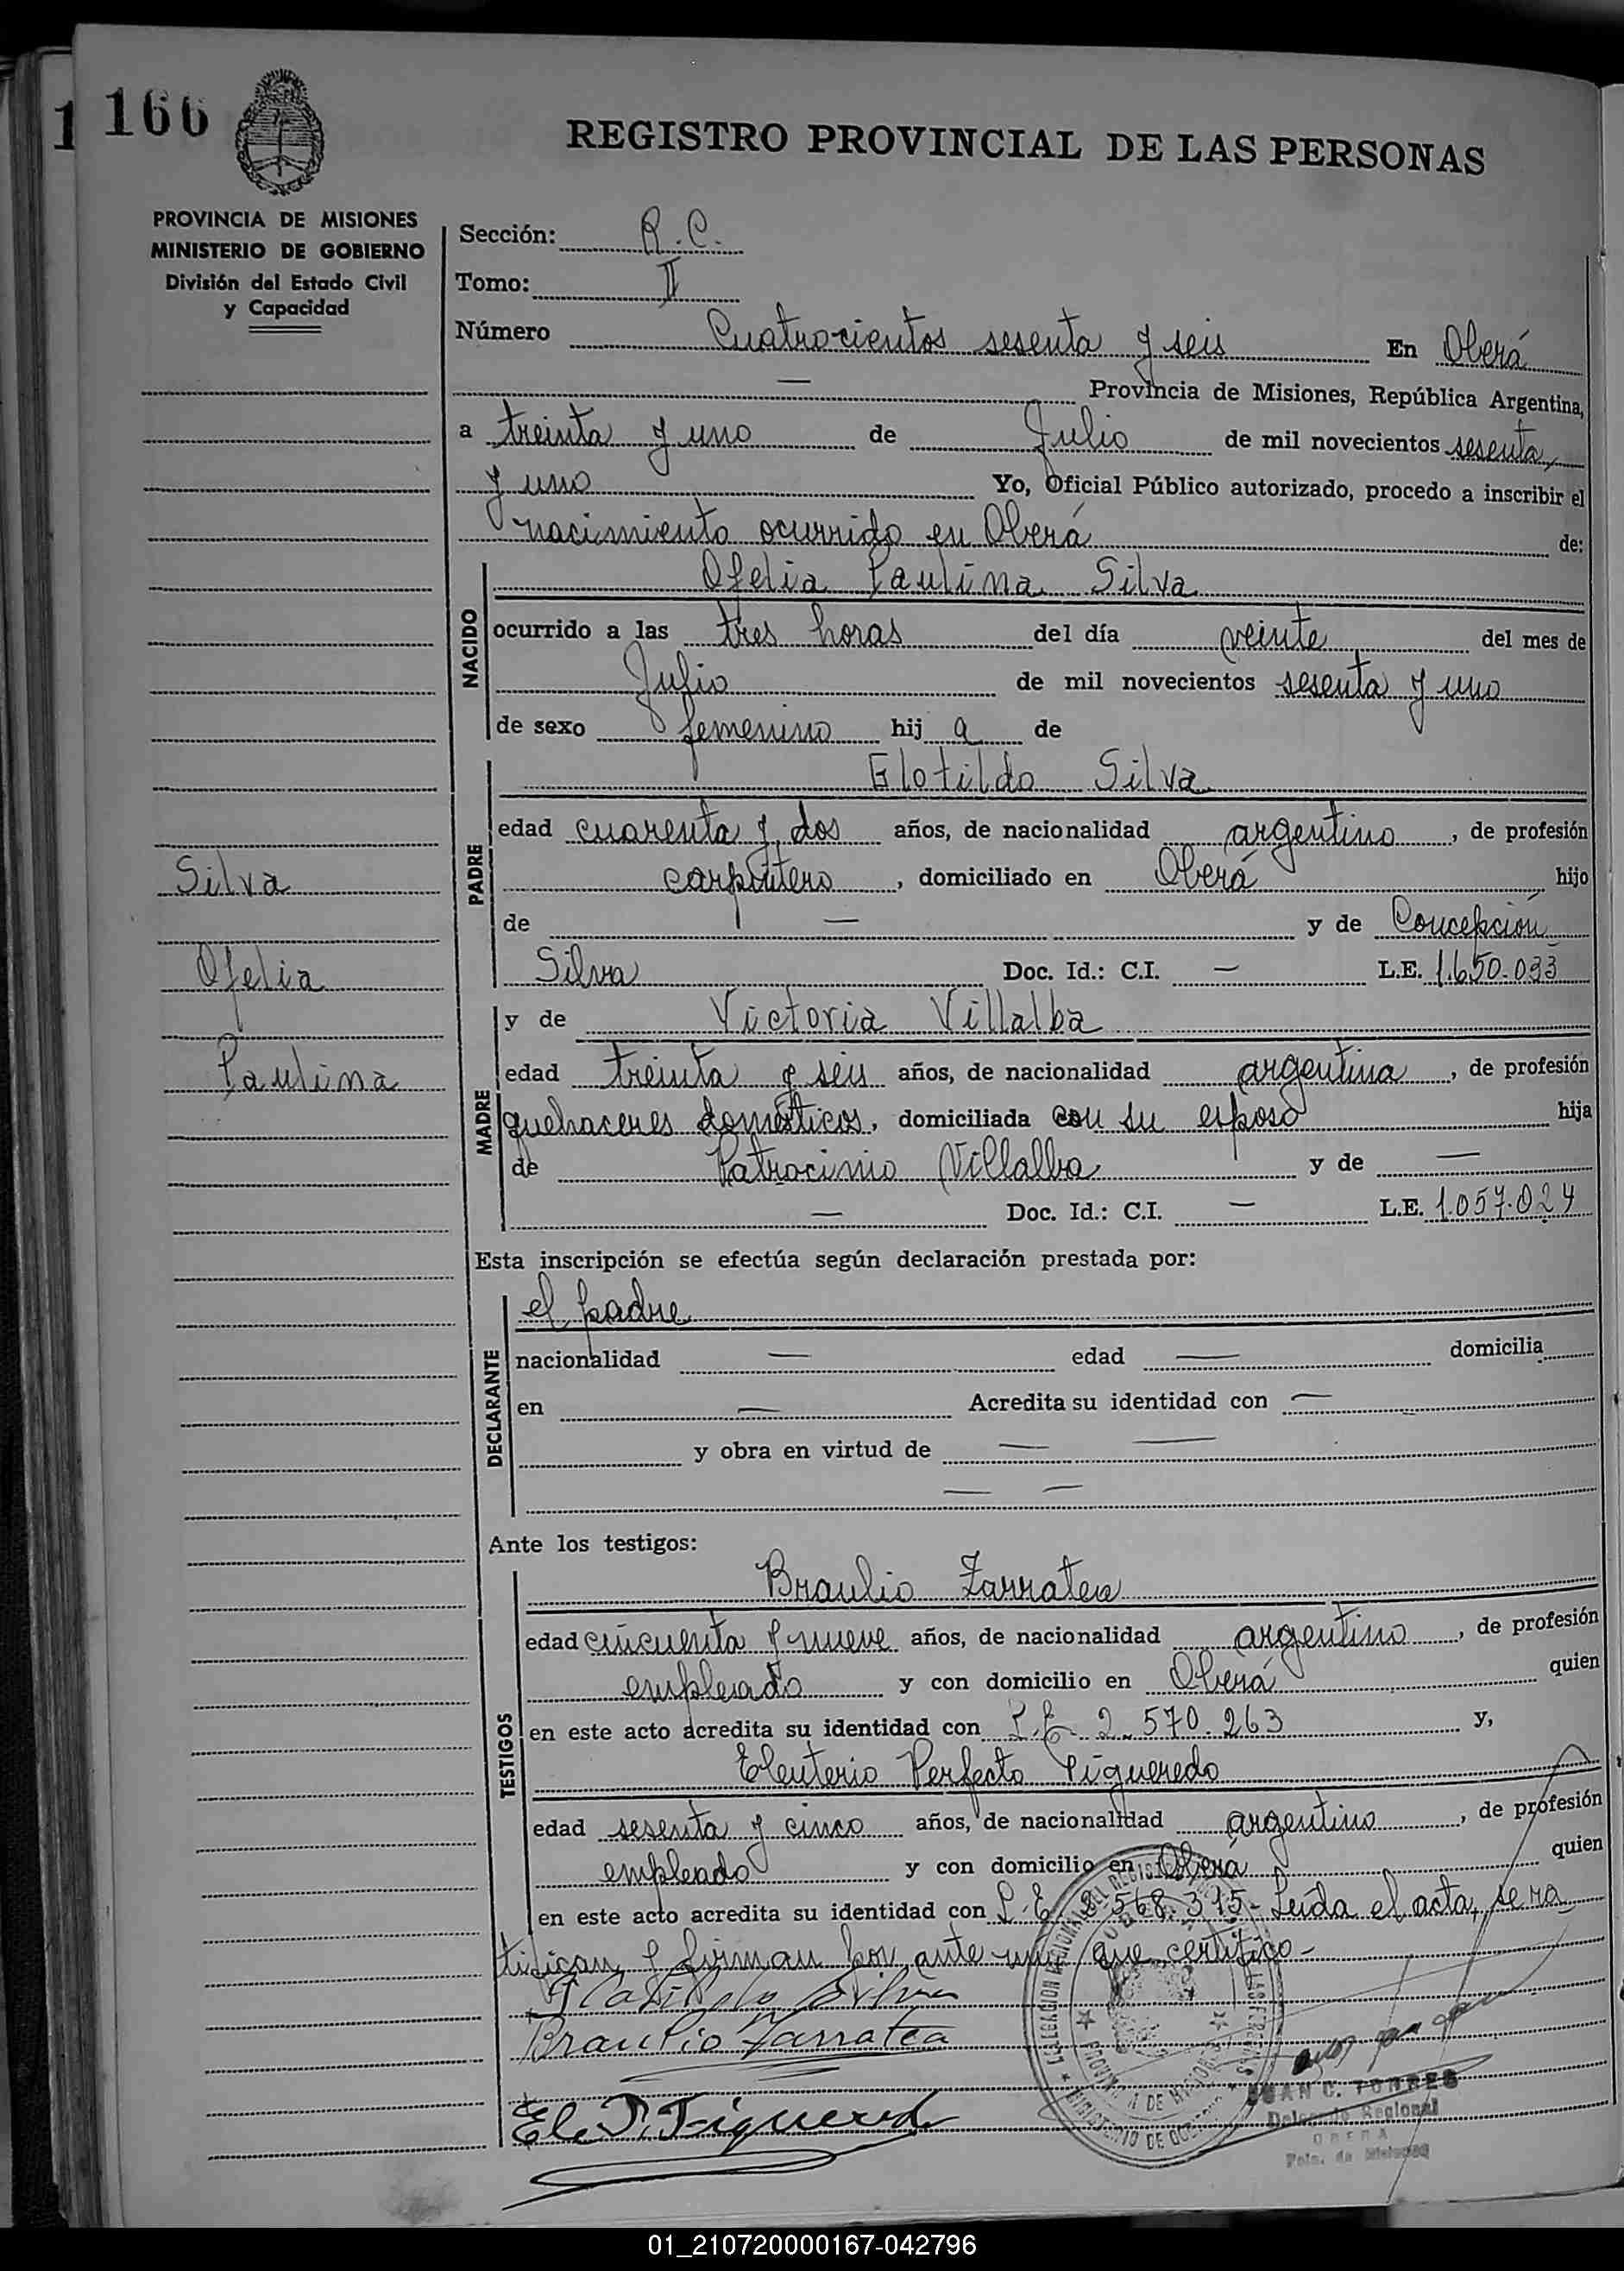 1 166
REGISTRO PROVINCIAL DE LAS PERSONAS
PROVINCIA DE MISIONES
MINISTERIO DE GOBIERNO
División del Estado Civil
y Capacidad
Sección: R. C.
Tomo: II
Número Cuatrocientos sesenta y seis En Oberá
— Provincia de Misiones, República Argentina,
a treinta y uno de Julio de mil novecientos sesenta
y uno Yo, Oficial Público autorizado, procedo a inscribir el
nacimiento ocurrido en Oberá de:
NACIDO
Ofelia Paulina Silva
ocurrido a las tres horas del día veinte del mes de
Julio de mil novecientos sesenta y uno
de sexo femenino hij a de
PADRE
Glotildo Silva
edad cuarenta y dos años, de nacionalidad argentino, de profesión
carpintero, domiciliado en Oberá hijo
de — y de Concepción
Silva Doc. Id.: C.I. — L.E. 1.650.033
Silva
Ofelia
Paulina
MADRE
y de Victoria Villalba
edad treinta y seis años, de nacionalidad argentina, de profesión
quehaceres domésticos, domiciliada con su esposo hija
de Patrocinio Villalba y de —
— Doc. Id.: C.I. — L.E. 1.057.024
Esta inscripción se efectúa según declaración prestada por:
DECLARANTE
el padre
nacionalidad — edad — domicilia
en — Acredita su identidad con —
y obra en virtud de — —
— —
Ante los testigos:
TESTIGOS
Braulio Zarratea
edad cincuenta y nueve años, de nacionalidad argentino, de profesión
empleado y con domicilio en Oberá quien
en este acto acredita su identidad con L.E. 2.570.263 y,
Eleuterio Perfecto Figueredo
edad sesenta y cinco años, de nacionalidad argentino, de profesión
empleado y con domicilio en Oberá quien
en este acto acredita su identidad con L.E. 2.568.315- Leída el acta, se ra
tifican y firman por ante mi que certifico-
Glotildo Silva
Braulio Zarratea
Ele. P. Figueredo
JUAN C. TORRES
Delegado Regional
OBERA
Pcia. de Misiones
01_210720000167-042796